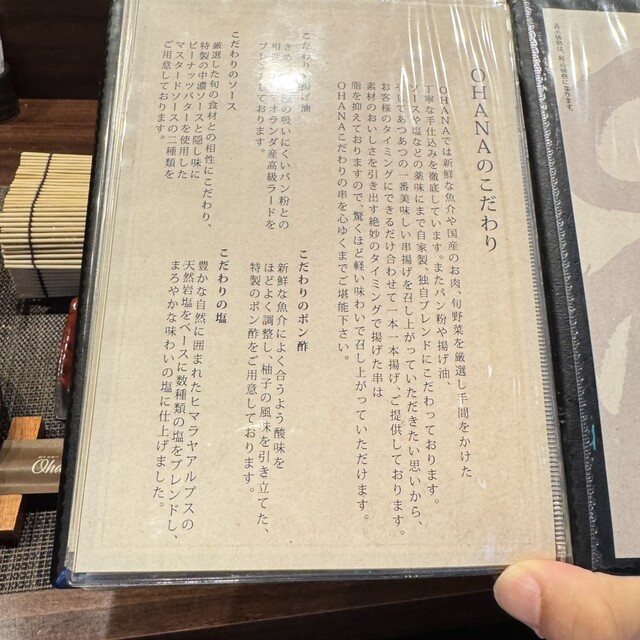 表示価格は、税込価格になります。
OHANAのこだわり
OHANAでは新鮮な魚介や国産のお肉、旬野菜を厳選し手間をかけた
丁寧な手仕込みを徹底しています。またパン粉や揚げ油、
ソースや塩などの薬味にまで自家製、独自ブレンドにこだわっております。
そしてあつあつの一番美味しい串揚げを召し上がっていただきたい思いから、
お客様のタイミングにできるだけ合わせて一本一本揚げ、ご提供しております。
素材のおいしさを引き出す絶妙のタイミングで揚げた串は
脂を抑えておりますので、驚くほど軽い味わいで召し上がっていただけます。
OHANAこだわりの串を心ゆくまでご堪能下さい。
こだわりの揚げ油
きめ
の吸いにくいパン粉との
相
オランダ産高級ラードを
ブレンドしております。
こだわりのソース
厳選した旬の食材との相性にこだわり、
特製の中濃ソースと隠し味に
ピーナッツバターを使用した
マスタードソースの二種類を
ご用意しております。
こだわりのポン酢
新鮮な魚介によく合うよう酸味を
ほどよく調整し、柚子の風味を引き立てた、
特製のポン酢をご用意しております。
こだわりの塩
豊かな自然に囲まれたヒマラヤアルプスの
天然岩塩をベースに数種類の塩をブレンドし、
まろやかな味わいの塩に仕上げました。
Oha